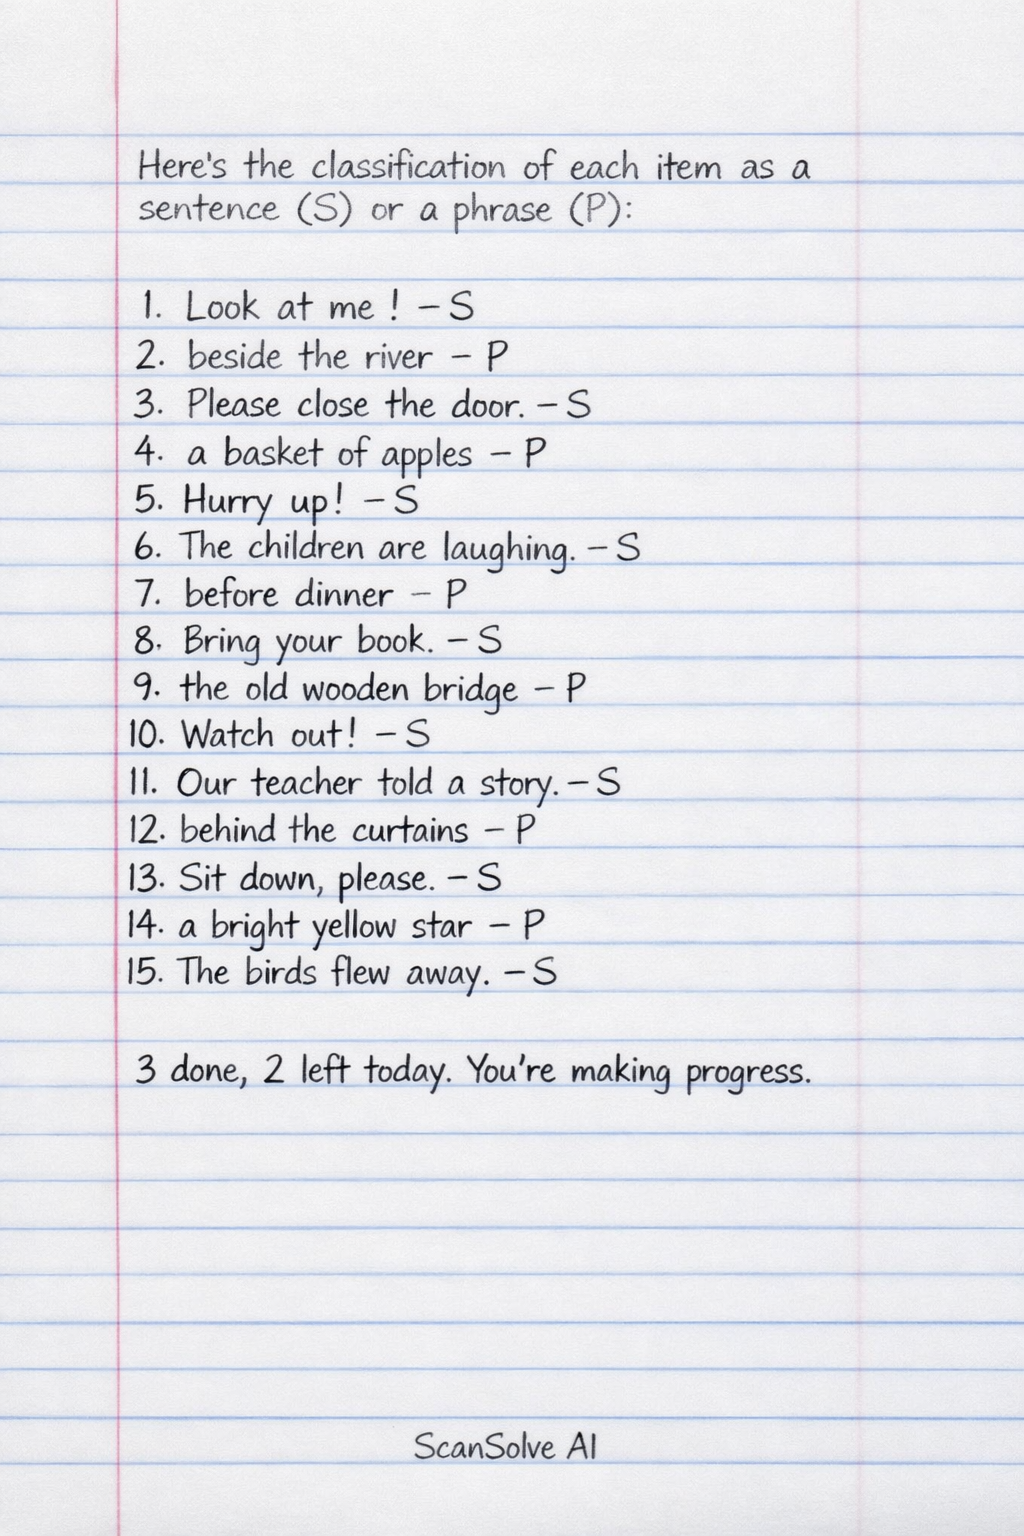 Here's the classification of each item as a
sentence (S) or a phrase (P):
1. Look at me ! – S
2. beside the river – P
3. Please close the door. – S
4. a basket of apples – P
5. Hurry up! – S
6. The children are laughing. – S
7. before dinner – P
8. Bring your book. – S
9. the old wooden bridge – P
10. Watch out! – S
11. Our teacher told a story. – S
12. behind the curtains – P
13. Sit down, please. – S
14. a bright yellow star – P
15. The birds flew away. – S
3 done, 2 left today. You're making progress.
ScanSolve AI